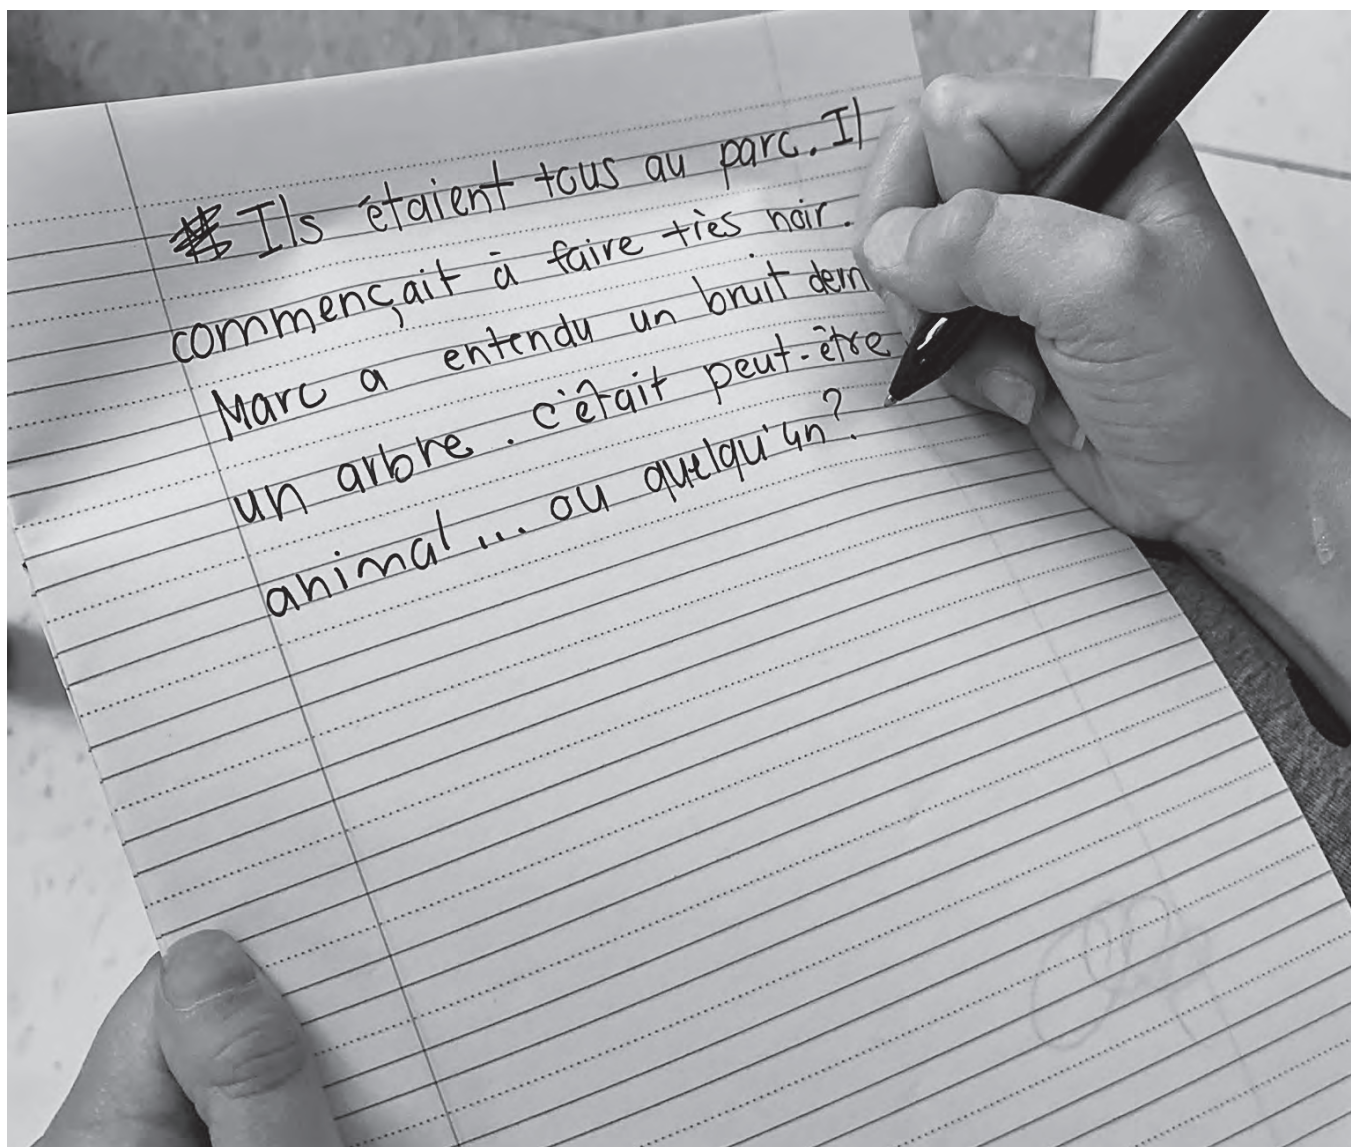 Ils étaient tous au parc. Il
commençait à faire très noir.
Marc a entendu un bruit
un arbre. c'êtait peut-être
animal... ou quelqu'un?